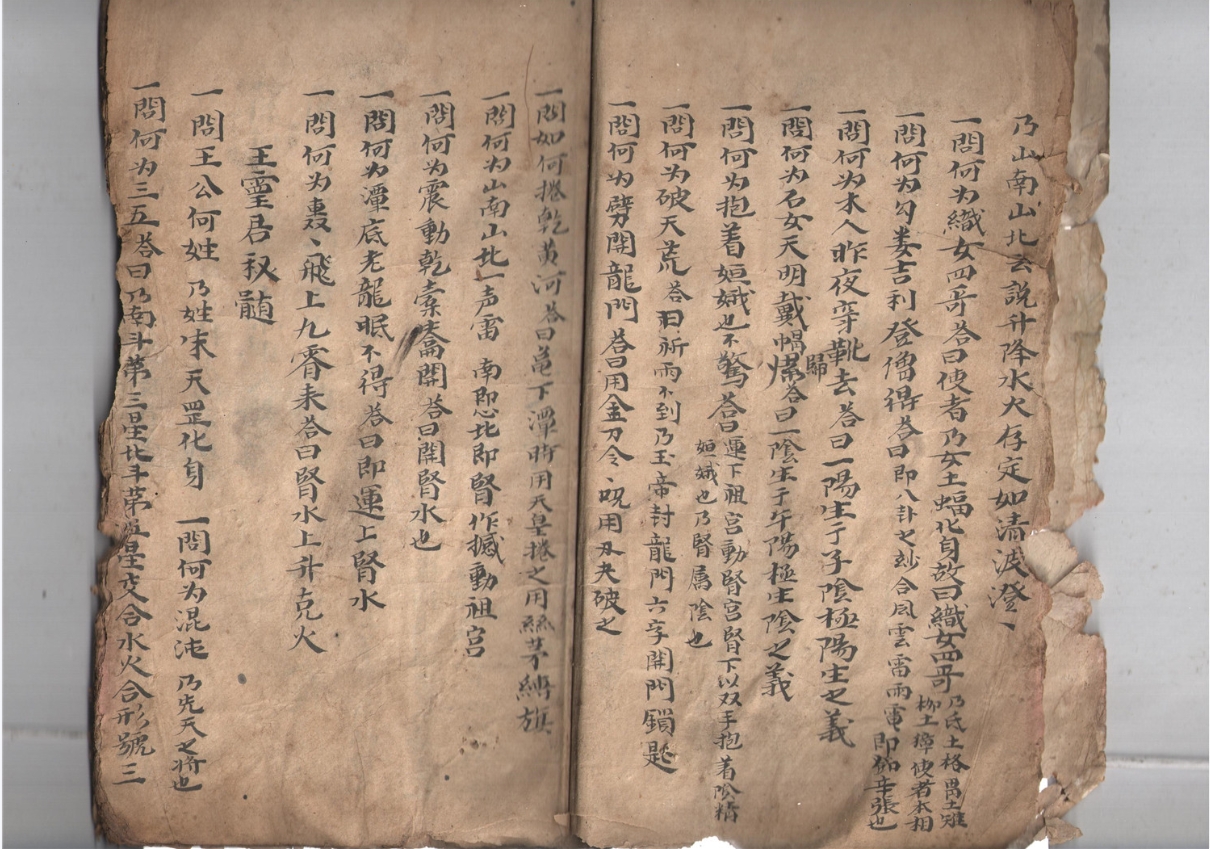 乃山南山北去説升降水火存定如清波澄、
一問何为織女四哥答曰使者乃女土蝠化身故曰織女四哥乃氐土格胃土雉
柳土獐使者本相
一問何为勾娄吉利登僧得答曰即八卦之玅合風雲雷雨電即鄧辛張也
一問何为木人昨夜穿靴去答曰一陽生于子陰極陽生之義
歸
一問何为石女天明戴帽答曰一陰生于午陽極生陰之義
一問何为抱着姮娥也不驚答曰運下祖宫動腎宫腎下以双手抱着陰精
姮娥也乃腎属陰也
一問何为破天荒答曰祈雨不到乃玉帝封龍門六字開門鎖匙
一問何为劈開龍門答曰用金刀令、呪用刀夬破之
一問如何捲乾黄河答曰亀下潭所用天皇捲之用絲茅縛旗
一問何为山南山北一声雷南即心北即腎作撼動祖宫
一問何为震動乾橐籥開答曰開腎水也
一問何为潭底老龍眠不得答曰即運上腎水
一問何为轟、飛上九霄来答曰腎水上升克火
王靈君秘髄
一問王公何姓乃姓宋天罡化身一問何为混沌乃先天之将也
一問何为三五答曰乃南斗第三星北斗第五星交合水火合形號三